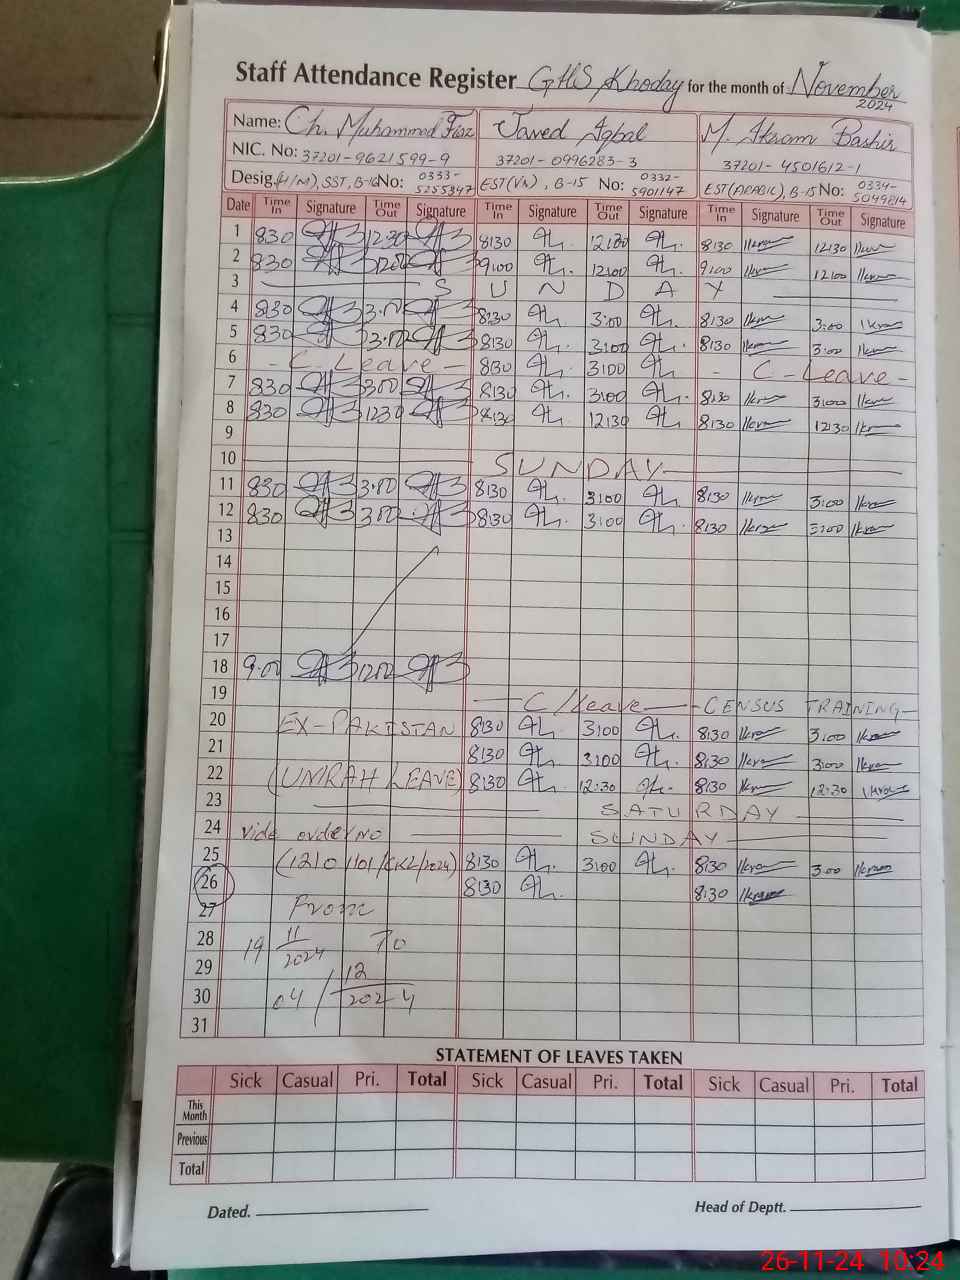 Staff Attendance Register GHS Khoday for the month of November 2024
Name: Ch. Muhammad Fiaz Javed Iqbal M. Ikram Bashir
NIC. No: 37201-9621599-9 37201-0996283-3 37201-4501612-1
Desig. (H/M), SST, B-16 No: 0333-5255347 EST(VN), B-15 No: 0332-5901147 EST(ARABIC), B-15 No: 0334-5049814
Date Time In Signature Time Out Signature Time In Signature Time Out Signature Time In Signature Time Out Signature
1 830 1230 8:30 12:30 8:30 12:30
2 830 9:00 12:00 9:00 12:00
3 S U N D A Y
4 830 3.00 8:30 3:00 8:30 3:00
5 830 3.00 8:30 3:00 8:30 3:00
6 - C. Leave - 8:30 3:00 - C - Leave -
7 830 300 8:30 3:00 8:30 3:00
8 830 1230 8:30 12:30 8:30 12:30
9
10 SUNDAY
11 830 3.00 8:30 3:00 8:30 3:00
12 830 300 8:30 3:00 8:30 3:00
13
14
15
16
17
18 9.00 1200
19 C/Leave CENSUS TRAINING
20 EX-PAKISTAN 8:30 3:00 8:30 3:00
21 8:30 3:00 8:30 3:00
22 (UMRAH LEAVE) 8:30 12:30 8:30 12:30
23 SATURDAY
24 vide order no SUNDAY
25 (1210 1101/CKL/2024) 8:30 3:00 8:30 3:00
26 8:30 8:30
27 From
28 19 11/2024 To
29
30 04/12/2024
31
STATEMENT OF LEAVES TAKEN
Sick Casual Pri. Total Sick Casual Pri. Total Sick Casual Pri. Total
This Month
Previous
Total
Dated. Head of Deptt.
26-11-24 10:24